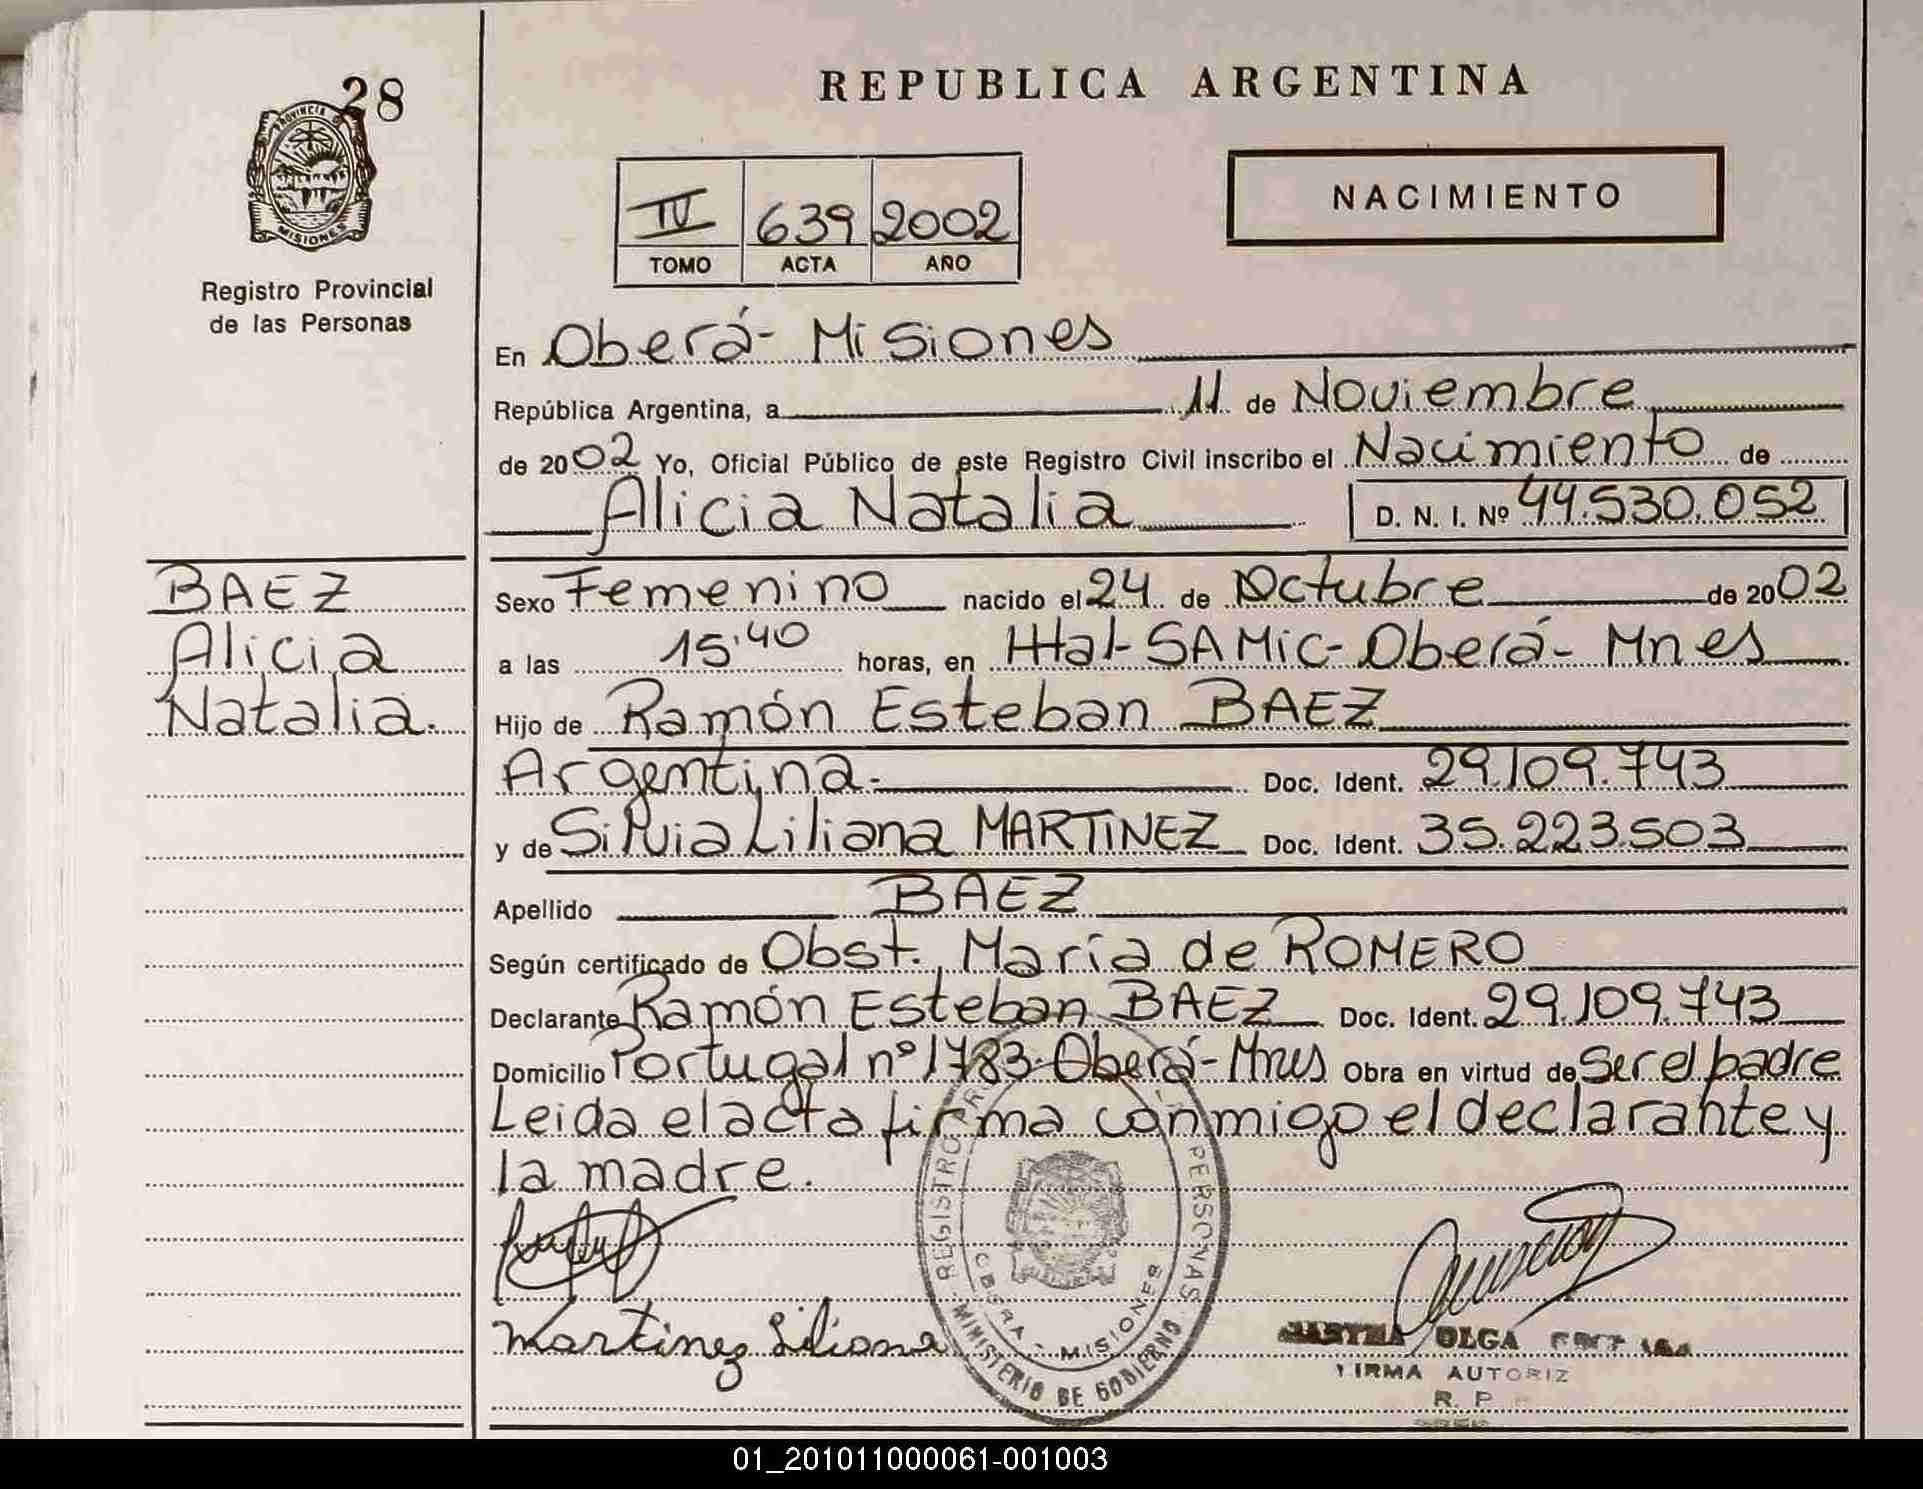 28
PROVINCIA DE
MISIONES
Registro Provincial
de las Personas
REPUBLICA ARGENTINA
IV 639 2002
TOMO ACTA AÑO
NACIMIENTO
En Oberá - Misiones
República Argentina, a 11 de Noviembre
de 2002 Yo, Oficial Público de este Registro Civil inscribo el Nacimiento de
Alicia Natalia D. N. I. Nº 44.530.052
BAEZ
Alicia
Natalia.
Sexo Femenino nacido el 24 de Octubre de 2002
a las 15:40 horas, en Htal - SAMIC - Oberá - Mnes
Hijo de Ramón Esteban BAEZ
Argentina.- Doc. Ident. 29.109.743
y de Silvia Liliana MARTINEZ Doc. Ident. 35.223.503
Apellido BAEZ
Según certificado de Obst. María de ROMERO
Declarante Ramón Esteban BAEZ Doc. Ident. 29.109.743
Domicilio Portugal nº 1783 - Oberá - Mnes Obra en virtud de ser el padre
Leida el acta firma conmigo el declarante y
la madre.
REGISTRO PERSONAS
MINISTERIO DE GOBIERNO
OBERA - MISIONES
Martinez Liliana
OLGA
FIRMA AUTORIZ
R. P
01_201011000061-001003